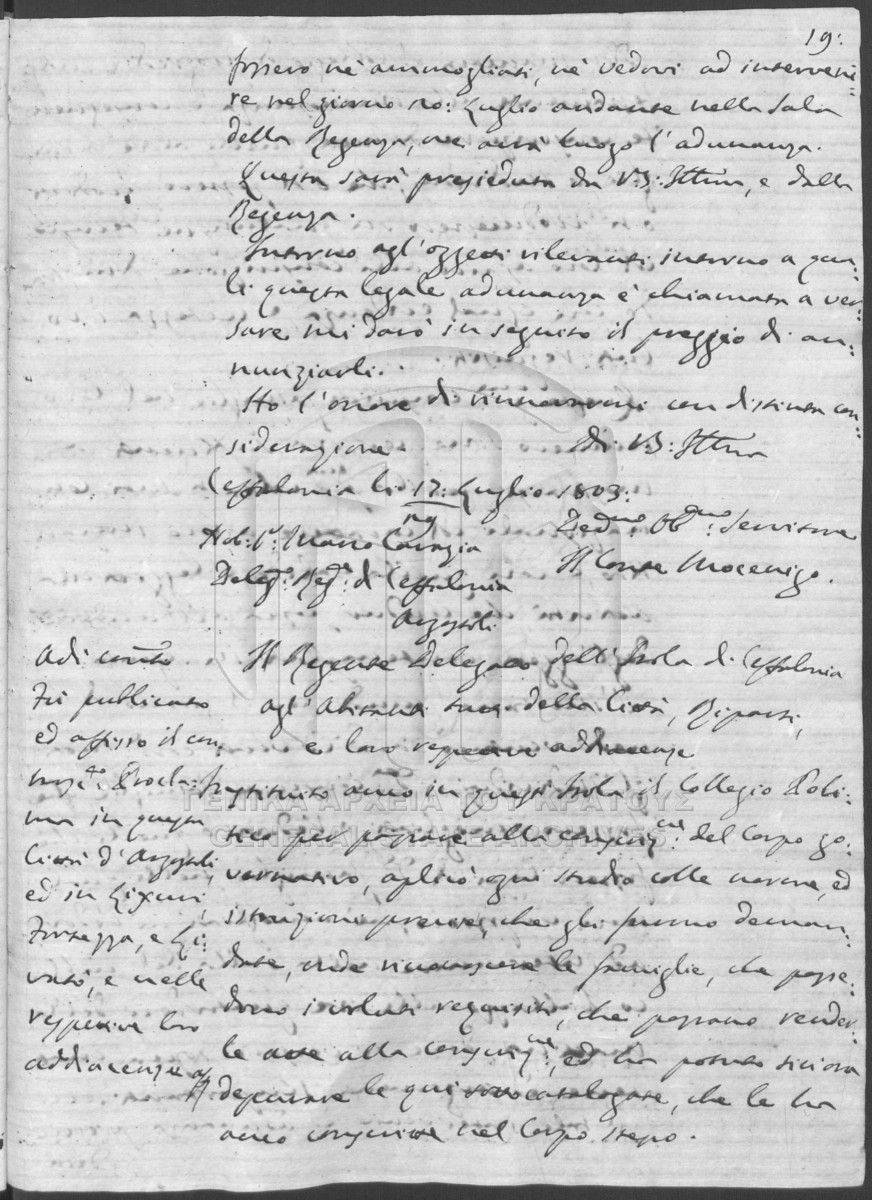 19:
fossero nè ammogliati, nè vedovi ad interveni=
re nel giorno 20: Luglio andante nella Sala
della Regenza, ove avrà luogo l'adunanza.
Questa sarà presieduta da V: S: Illma, e dalla
Regenza.
Intorno agl'oggetti rilevanti intorno a qua=
li questa legale adunanza è chiamata a ver=
sare mi darò in seguito il preggio di an=
nunziarli.
Ho l'onore di rinnovarmi con distinta con=
siderazione
Di V: S: Illma
Ceffalonia li 17: Luglio 1803:
Nob: Sr. Marco
Delegto: Regte: di Ceffalonia
Argostoli
Devmo Obmo: Servitore
Il Conte Mocenigo.
Adi contto
Fù publicato
ed affisso il
Procla=
ma in questa
Città d'Argostoli,
ed in Lixuri,
Fortezza, e Li=
vatò, e nelle
respettive loro
addiacenze
Il Regente Delegato dell'Isola di Ceffalonia
agl'Abitanti tutti della Città, Riparti,
e loro respettive addiacenze
Instituito anco in quest'Isola il Collegio Poli=
tico per passare alla del Corpo go=
vernativo, aplicò ogni studio colle norme, ed
istruzioni precise, che gli furono deman=
date, onde rinvenire le famiglie, che posse=
dono i voluti requisiti, che possano render=
le atte alla ed ha potuto sinora
depurare le qui sotto catalogate, che le ha
anco nel Corpo stesso.